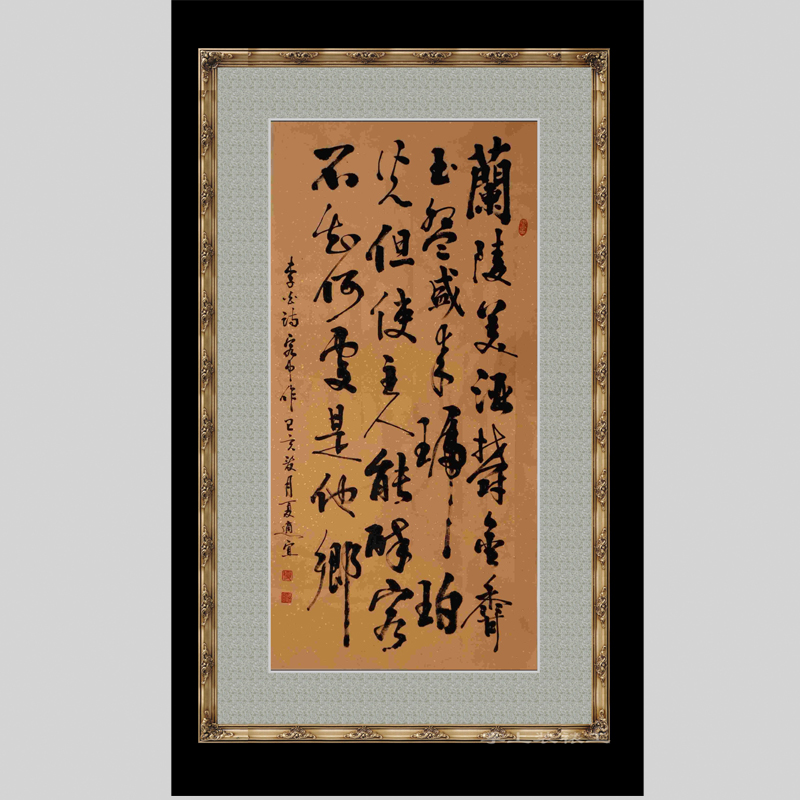 蘭陵美酒鬱金香
玉盌盛来琥珀
光但使主人能醉客
不知何處是他鄉
李白詩客中作己亥月夏宜